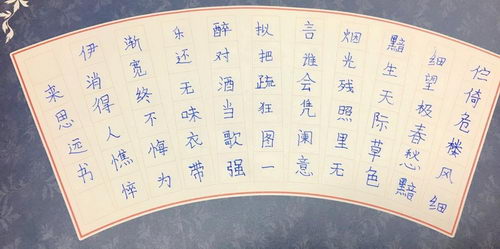 伫倚危楼风细
细望极春愁黯
黯生天际草色
烟光残照里无
言谁会凭阑意
拟把疏狂图一
醉对酒当歌强
乐还无味衣带
渐宽终不悔为
伊消得人憔悴
来思远书